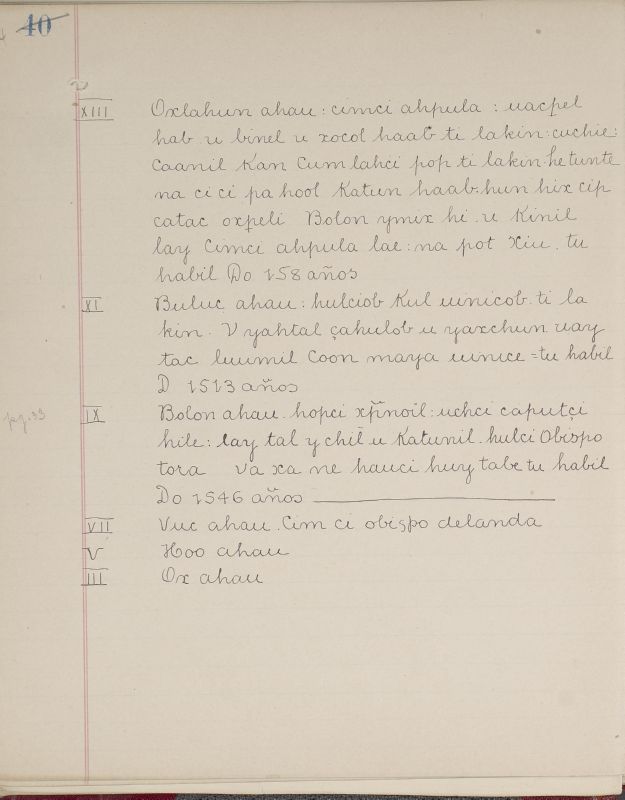 40
XIII Oxlahun ahau : cimci ahpula : uacpel
hab u binel u xocol haab ti lakin : cuchie :
Caanil Kan Cumlahci pop ti lakin : hetunte
na ci ci pa hool Katun haab : hun hix cip
catac oxpeli Bolon ymix hi . u Kinil
lay Cimci ahpula lae : na pot Xiu . tu
habil Do 158 años
XI Buluc ahau : hulciob Kul uinicob . ti la
kin . V yahtal çahulob u yaxchun uay
tac luumil Coon maya uinice = tu habil
D 1513 años
pg. 33 IX Bolon ahau . hopci xp̄īnoil : uchci caputçi
hile : lay tal ychil u Katunil . hulci Obispo
tora va xa ne hauci huy tabe tu habil
Do 1546 años
VII Vuc ahau . Cim ci obispo delanda
V Hoo ahau
III Ox ahau